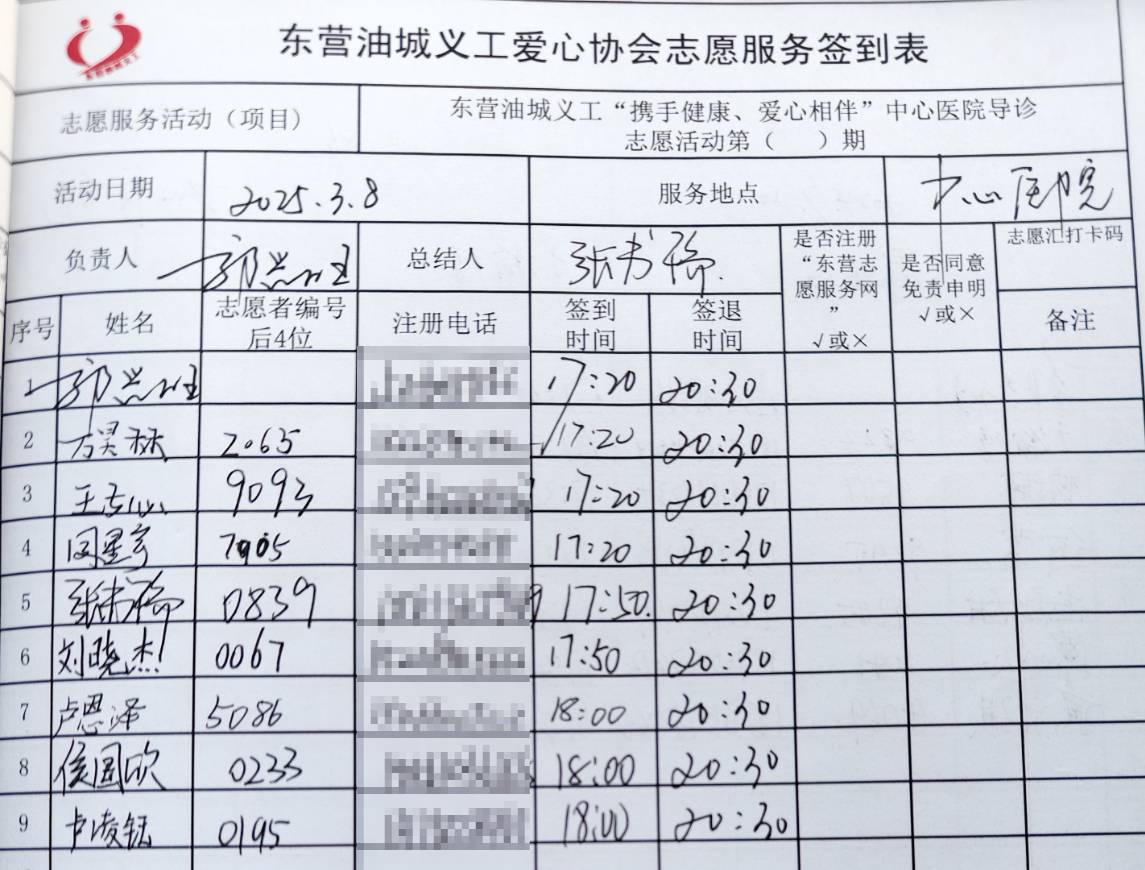 东营油城义工爱心协会志愿服务签到表
志愿服务活动（项目） 东营油城义工“携手健康、爱心相伴”中心医院导诊
志愿活动第（ ）期
活动日期 2025.3.8 服务地点 中心医院
负责人 总结人 张书 是否注册“东营志愿服务网”√或× 是否同意免责申明√或× 志愿汇打卡码
序号 姓名 志愿者编号后4位 注册电话 签到时间 签退时间 备注
1 17:20 20:30
2 2065 17:20 20:30
3 王 9093 17:20 20:30
4 周星宇 7905 17:20 20:30
5 张书 0839 17:50 20:30
6 刘晓杰 0067 17:50 20:30
7 卢恩泽 5086 18:00 20:30
8 侯国欣 0233 18:00 20:30
9 卢凌钰 0195 18:00 20:30